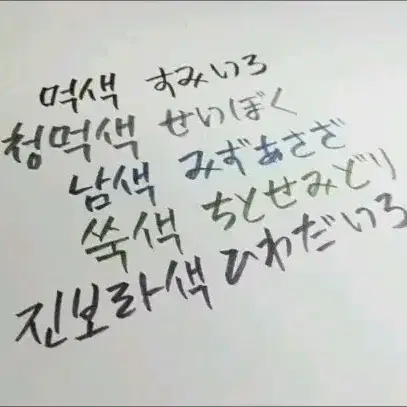 먹색 すみいろ
청먹색 せいぼく
남색 みずあさぎ
쑥색 ちとせみどり
진보라색 ひわだいろ